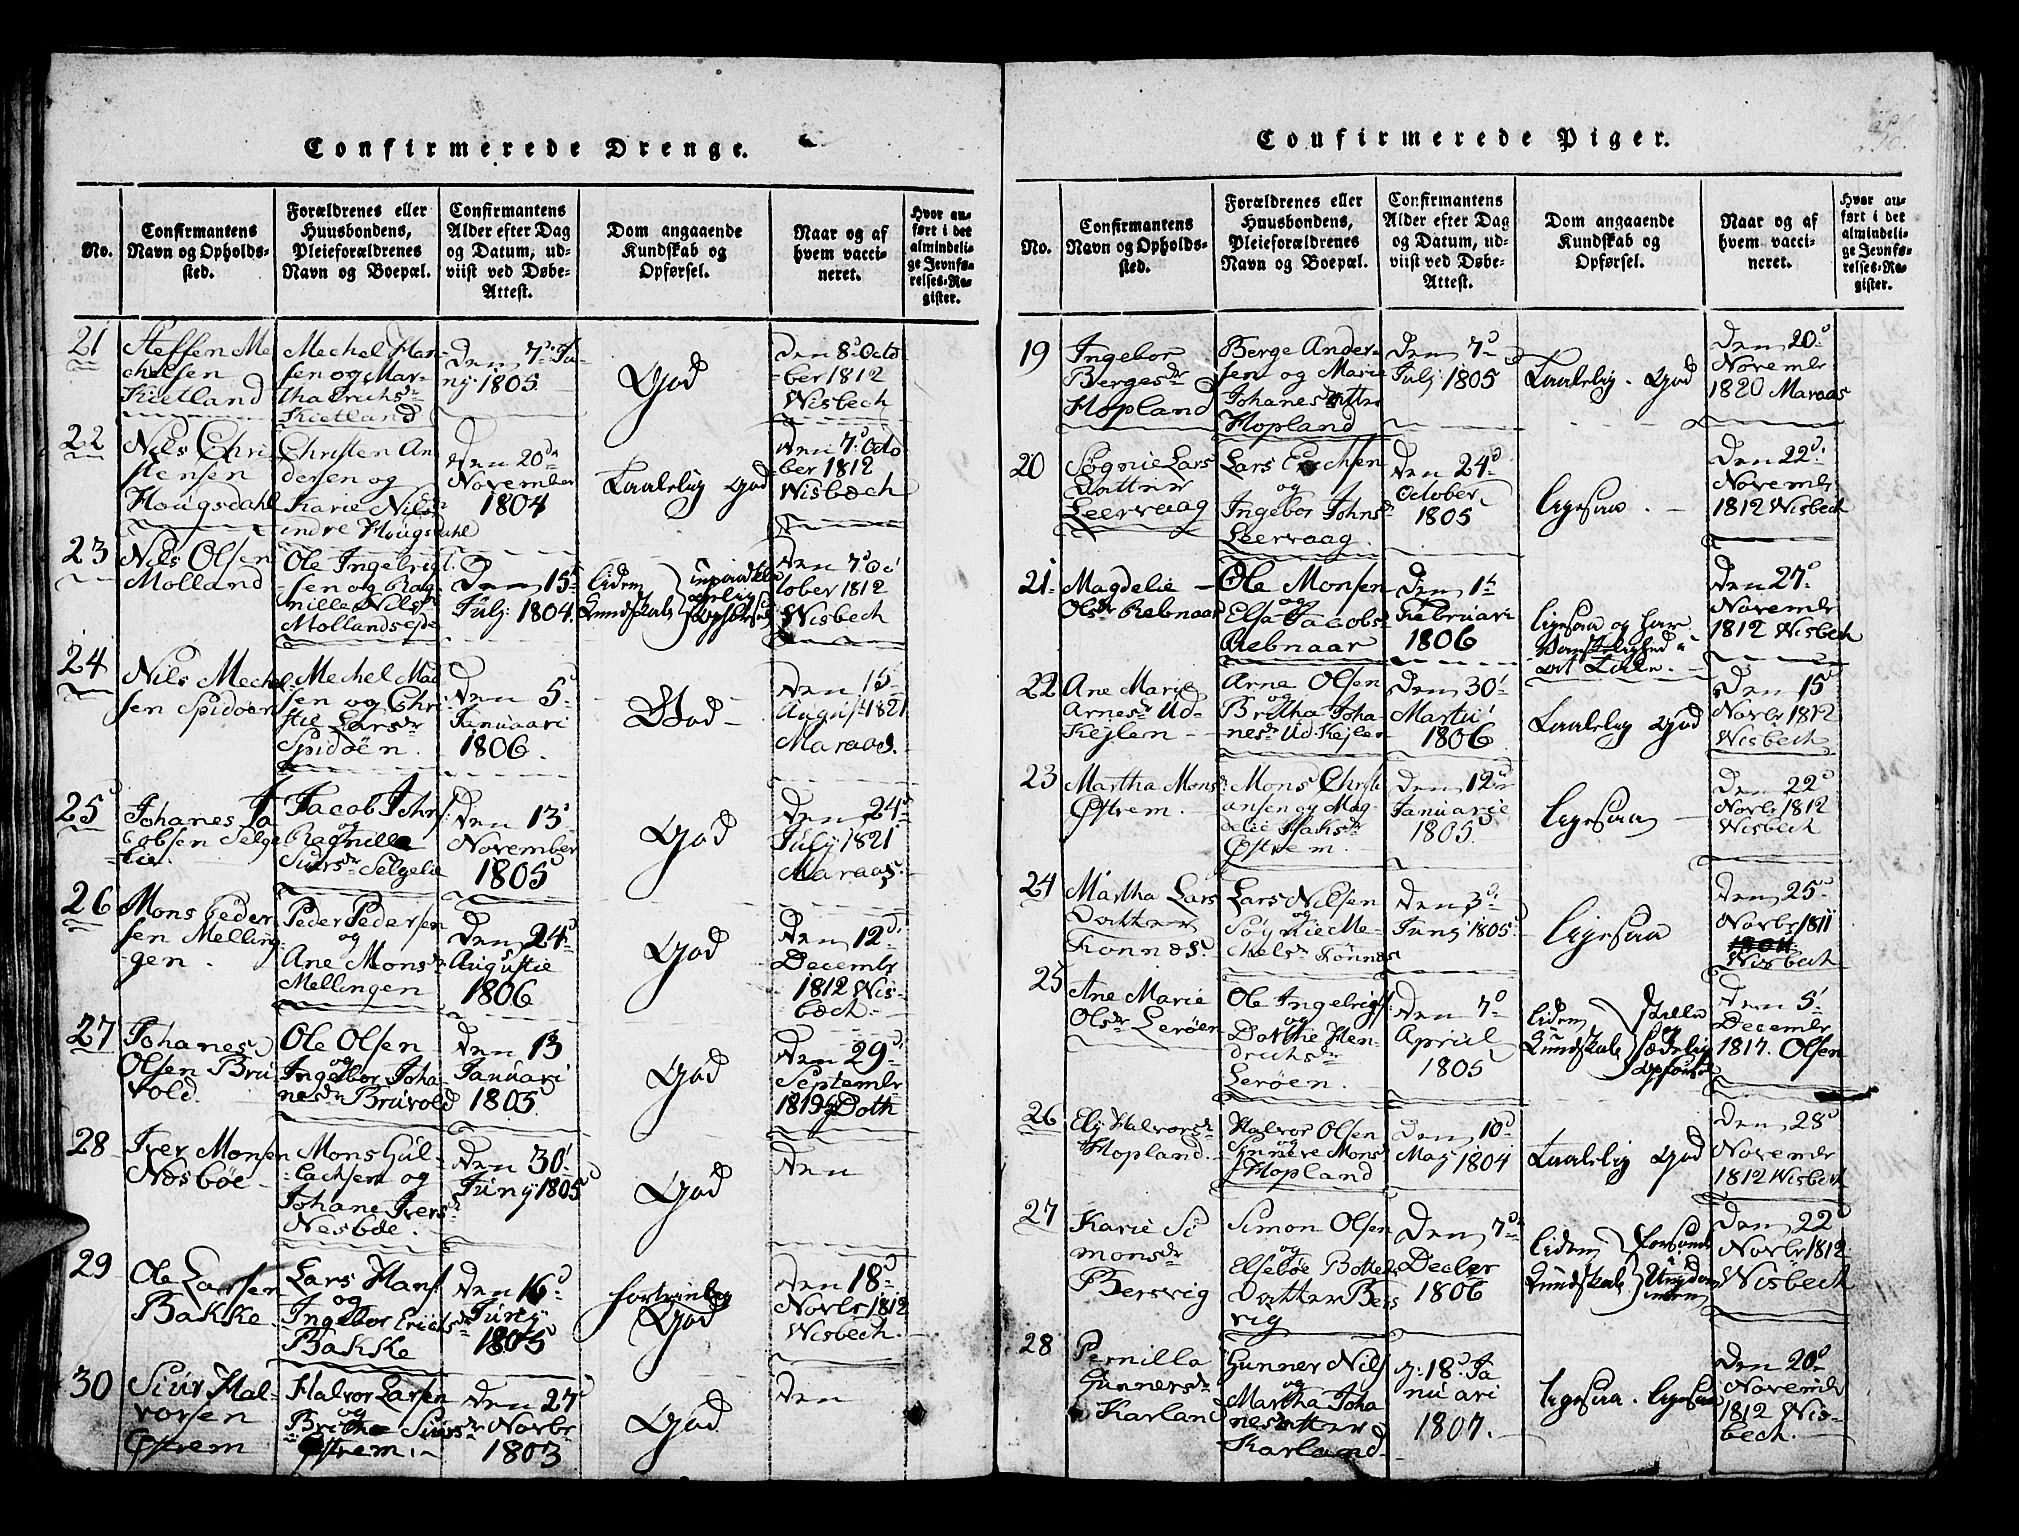 Confirmerede Drenge.
No.
Confirmantens
Navn og Opholds-
sted.
Forældrenes eller
Huusbondens,
Pleieforældrenes
Navn og Boepæl.
Confirmantens
Alder efter Dag
og Datum, ud-
viist ved Døbe-
Attest.
Dom angaaende
Kundskab og
Opførsel.
Naar og af
hvem vacci-
neret.
Hvor an-
ført i det
almindeli-
ge Jevnfø-
relses-Re-
gister.
21
Steffen Me
chelsen
Kietland
Mechel Han-
sen og Mar-
tha Erichsdr
Kietland
Den 7d Ju-
nij 1805
God
Den 8d Octo
ber 1812
Wisbech
22
Nils Chri
stensen
Hougsdahl
Christen An
dersen og
Karie Nilsdr
indre Hougsdahl
Den 20de
November
1804
Taalelig God
Den 7d Octo
ber 1812
Wisbæch
23
Nils Olsen
Molland
Ole Ingebrigt
sen og Rag
nille Nilsdr
Mollandseide
Den 15d
Julj 1804.
liden
Kundskab
Den 7d Oc
tober 1812
Wisbech
24
Nils Mechel
sen Spidøen
Mechel Mad
sen og Chri
stie Larsdr
Spidøen.
Den 5d
Januari
1806.
God
Den 15
August 1821
Maraas.
25
Johanes Ja
cobsen Selge
lie.
Jacob Johns
og
Ragnille
Siursdr Selgelie
Den 13d
November
1805
God
Den 24d
July 1821
Maraas.
26
Mons Peder
sen Melling
gen.
Peder Pedersen
og
Ane Monsdr
Mellingen
Den 24d
Augustie
1806
God
Den 12d
Decembr
1812 Wis-
bæch
27
Johanes
Olsen Bru
vold.
Ole Olsen
og
Ingebor Joha-
nesdr Bruvold
Den 13
Januari
1805.
God
Den 29d
Septembr
1819 Doth
28
Iver Monsen
Næsbøe
Mons Gul-
lachsen og
Johane Iversdr
Nesbøe.
Den 30d
Junij 1805
God
Den
29
Ole Larsen
Bakke.
Lars Hans
og
Ingebor Erichsdr
Bakke
Den 16d
Junij
1805
fortrinlig
God
Den 18d
Novbr 1812
Wisbech.
30
Siur Hal-
vorsen
Østrem
Halvor Larsen
og
Brithe Siursdr
Østrem.
Den 27d
Novbr
1803
God
Den
Confirmerede Piger.
No.
Confirmantens
Navn og Opholds-
sted.
Forældrenes eller
Huusbondens,
Pleieforældrenes
Navn og Boepæl.
Confirmantens
Alder efter Dag
og Datum, ud-
viist ved Døbe-
Attest.
Dom angaaende
Kundskab og
Opførsel.
Naar og af
hvem vacci-
neret.
Hvor an-
ført i det
almindeli-
ge Jevnfø-
relses-Re-
gister.
19
Ingebor
Bergesdr
Hopland
Berge Ander-
sen og Marie
Johanes Datter
Hopland
Den 7d
Julj 1805
Taalelig. God
Den 20d
Novembr
1820 Maraas
20
Søgnie Lars
Datter
Leervaag
Lars Erichsen
og
Ingebor Johnsdr
Leervaag.
Den 24d
October
1805
ligesaa.
Den 22d
Novembr
1812 Wisbech
21
Magdelie
Olsdr Rebnaar
Ole Monsen
og
Elsa Jacobs
Rebnaar
Den 1te
Februari
1806
ligesaa og har
Den 27d
Novembr
1812 Wisbech
22
Ane Marie
Arnesdr Ud-
Kejlen
Arne Olsen
og
Britha Joha-
nesdr Ud-Kejlen
Den 30d
Martii
1806
Taalelig God
Den 15d
Novbr 1812
Wisbech
23
Martha Monsdr
Østrem.
Mons Christi
ansen og Mag-
delie Isaksdr
Østrem.
Den 12d
Januarie
1805.
ligesaa
Den 22d
Novbr 1812
Wisbech
24
Martha Lars
Datter
Tonnæs.
Lars Nilsen
og
Søgnie Me-
chelsdr Tonnæs
Den 3d
Junj 1805.
ligesaa
Den 25d
Novbr 1811
Wisbech
25
Ane Marie
Olsdr Lerøen
Ole Ingebrigts
og
Dorthe Hen-
drichsdr
Lerøen.
Den 7d
Apriel
1805
liden
Kundskab
stille
og
sædelig
opførsel
Den 5d
Decembr
1817. Olsen
26
Elj Halvorsdr
Hopland.
Halvor Olsen
og
Synneve Mons
Hopland
Den 10d
Maj 1804
Taalelig God
Den 28d
Novembr
1812 Wisbech
27
Karie Si
monsdr
Bersvig
Simon Olsen
og
Elsebøe Bottels
Datter Bers
vig
Den 7d
Decbr
1806
liden
Kundskab
Den 22d
Novbr 1812
Wisbech
28
Pernilla
Gunnersdr
Karland
Gunner Nils
og
Martha Joha
nesdatter
Karland
D. 18d Ja
nuari
1807.
ligesaa. ligesaa
Den 20d
Novembr
1812 Wis-
bech.